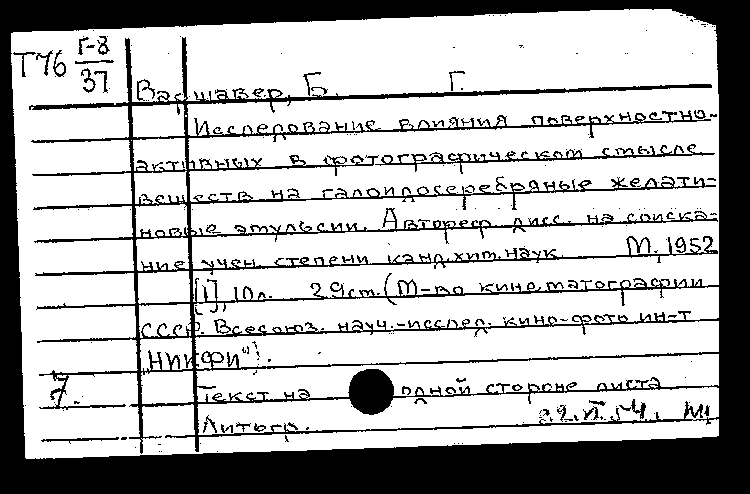 Т76 Г-8/37
Варшавер, Б. Г.
Исследование влияния поверхностно-
активных в фотографическом смысле
веществ на галоидосеребряные желати-
новые эмульсии. Автореф. дисс. на соиска-
ние учен. степени канд. хим. наук М, 1952
[1], 10л. 29см. (М-во кинематографии
СССР. Всесоюз. науч.-исслед. кино-фото ин-т
"НИКФИ").
7. Текст на одной стороне листа
Литогр. 54.